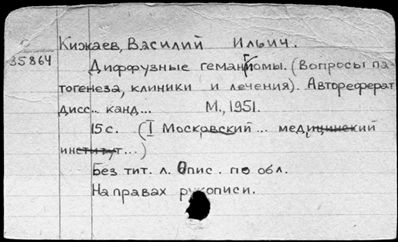 Кижаев, Василий Ильич.
35864
Диффузные гемангиомы. (Вопросы па-
тогенеза, клиники и лечения). Автореферат
дисс... канд... М., 1951.
15 с. (I Московский ... медицинский
институт...)
Без тит. л. Опис. по обл.
На правах рукописи.